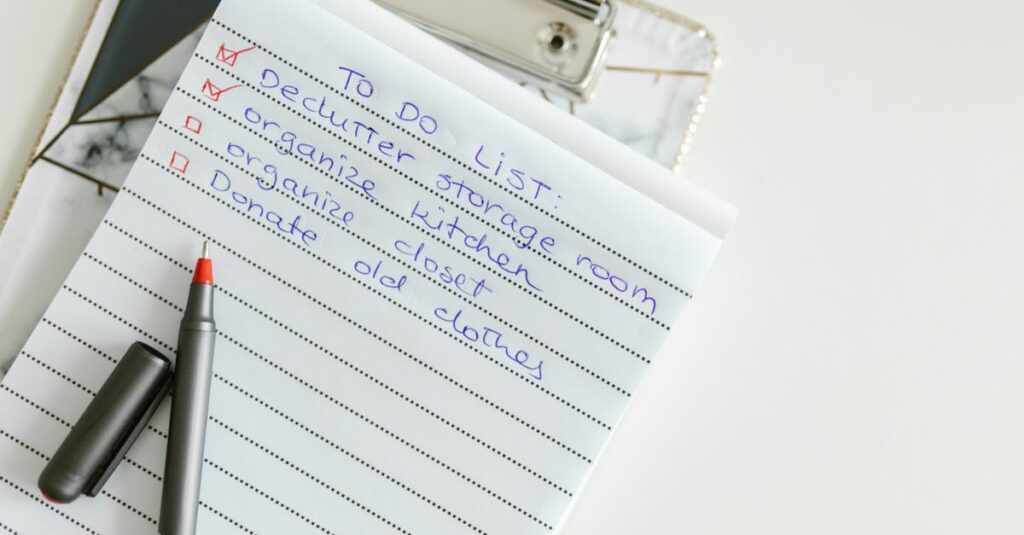 To Do List:
Declutter storage room
organize kitchen
organize closet
Donate old clothes